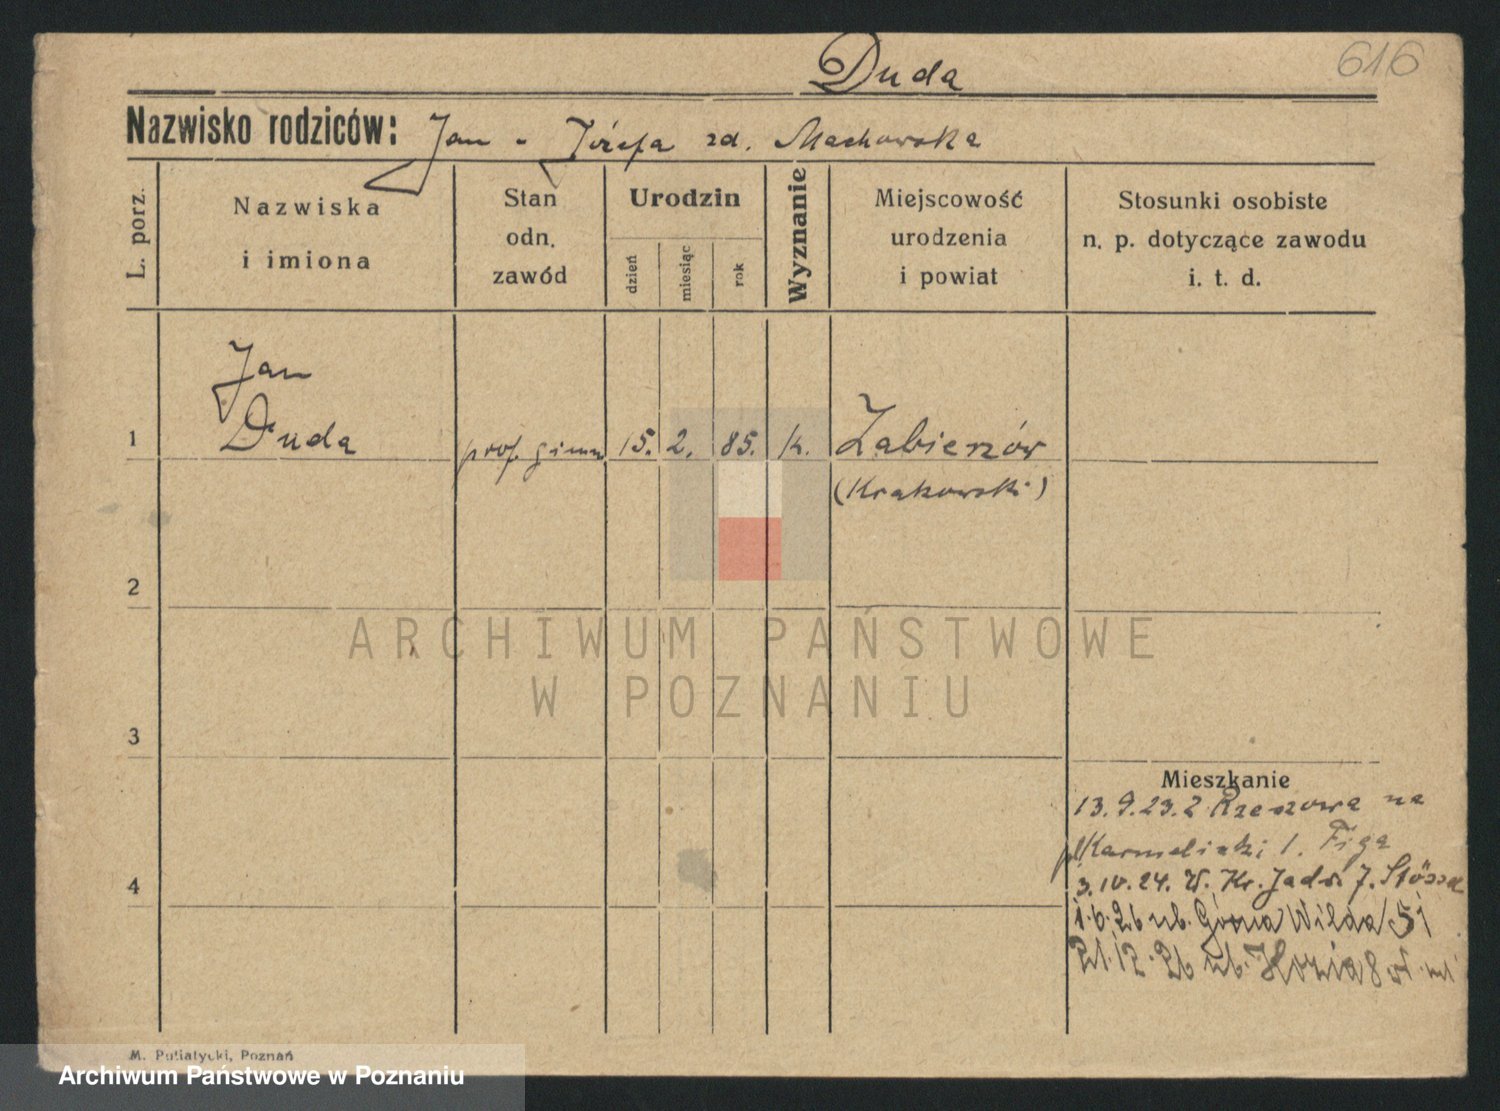 Duda
616
Nazwisko rodziców: Jan - Józefa zd. Machowska
L. porz.
Nazwiska
i imiona
Stan
odn.
zawód
Urodzin
dzień
miesiąc
rok
Wyznanie
Miejscowość
urodzenia
i powiat
Stosunki osobiste
n. p. dotyczące zawodu
i. t. d.
Jan
1 Duda prof. gimn 15. 2. 85. k. Zabierzów
(Krakowski)
2
ARCHIWUM PAŃSTWOWE
W POZNANIU
3
Mieszkanie
13. 9. 23. z Rzeszowa na
pl Karmelicki 1. Figa
4
3. 10. 24. W. Kr. Jadw. 7.
1. 6. 26 ub. Górna Wilda 51
21. 12. 26 ub. 8
M. Putiatycki, Poznań
Archiwum Państwowe w Poznaniu